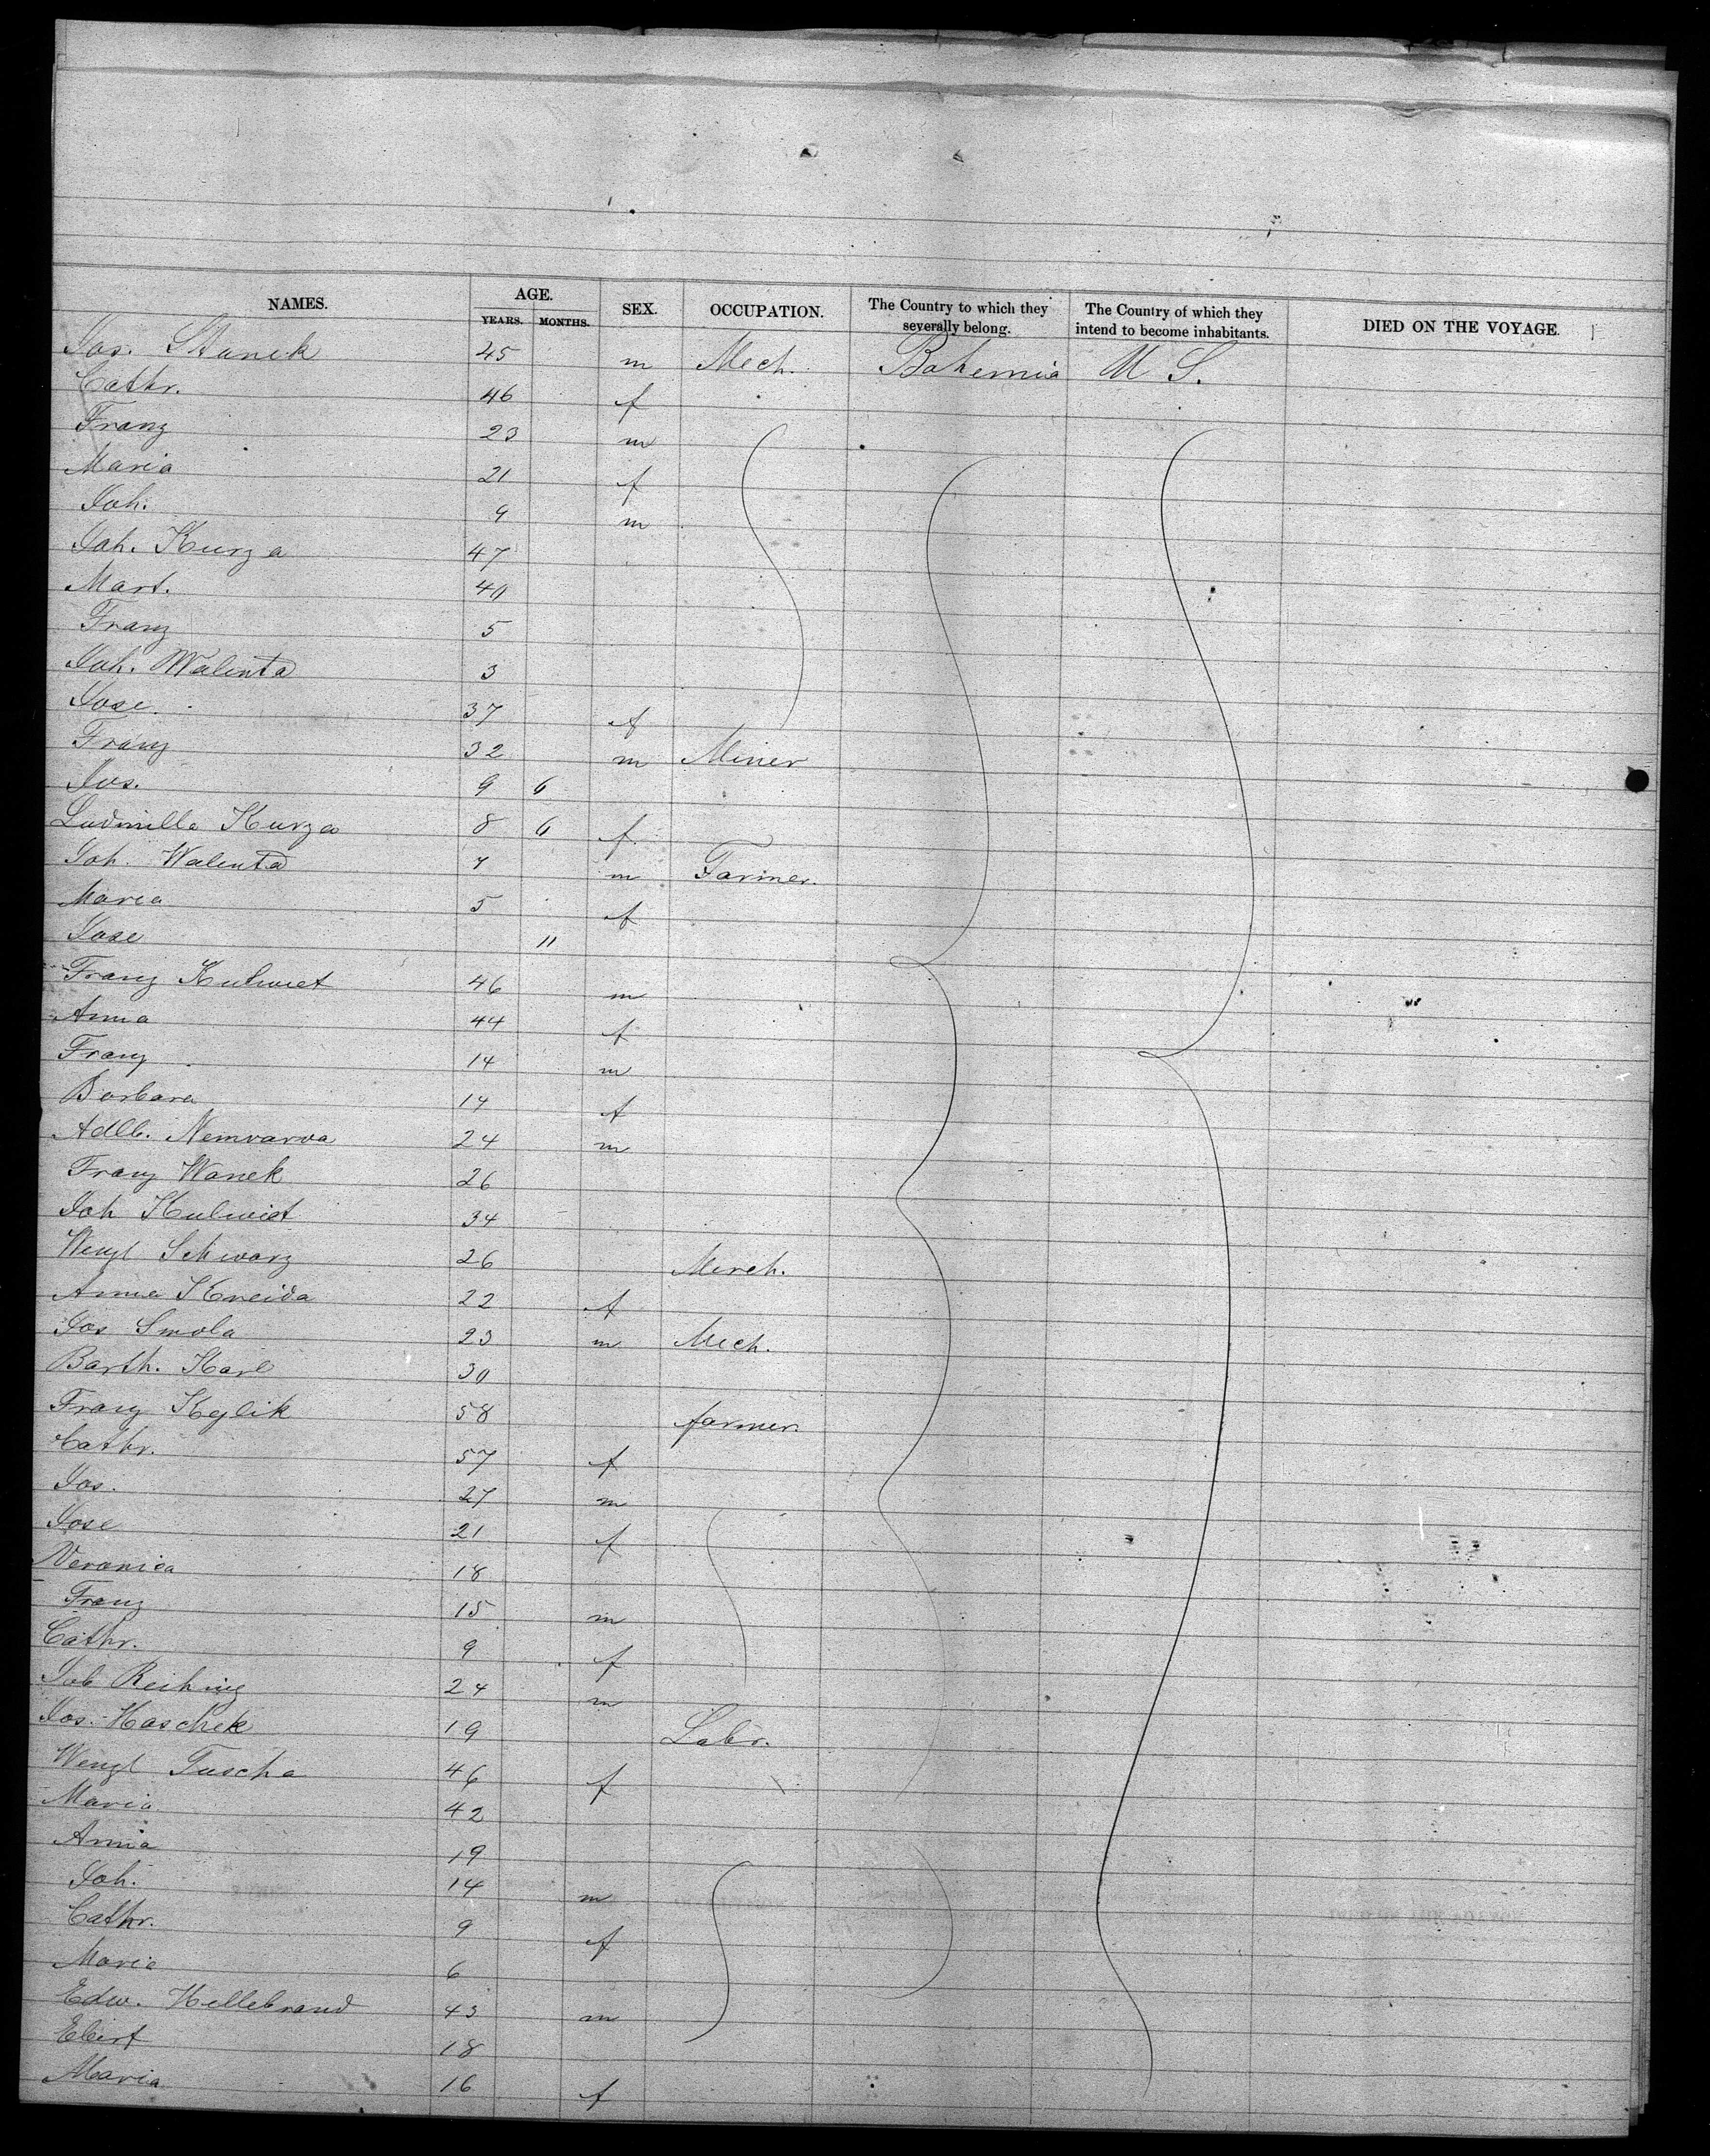 NAMES. AGE. YEARS. MONTHS. SEX. OCCUPATION. The Country to which they severally belong. The Country of which they intend to become inhabitants. DIED ON THE VOYAGE.
Jos. Stanek 45 m Mech. Bohemia U S.
Cathr. 46 f
Franz 23 m
Maria 21 f
Joh. 9 m
Joh. Kurza 47
Mart. 40
Franz 5
Joh. Walenta 3
Jose. 37 f
Franz 32 m Miner
Jos. 9 6
Ludmilla Kurza 8 6 f
Joh. Walenta 7 m Farmer.
Maria 5 f
Jose 11
Franz Kulwiet 46 m
Anna 44 f
Franz 14 m
Barbara 14 f
Adlb. Nemvarva 24 m
Franz Wanek 26
Joh Kulwiet 34
Wenzl Schwarz 26 Merch.
Anna Kneida 22 f
Jos Smola 23 m Mech.
Barth. Karl 30
Franz Keglik 58 farmer.
Cathr. 57 f
Jos. 27 m
Jose 21 f
Veronica 18
Franz 15 m
Cathr. 9 f
Job Reihing 24 m
Jos. Haschek 19 Labr.
Wenzl Tuscha 46 f
Maria 42
Anna 19
Joh. 14 m
Cathr. 9 f
Maria 6
Edw. Hellebrand 43 m
18
Maria 16 f